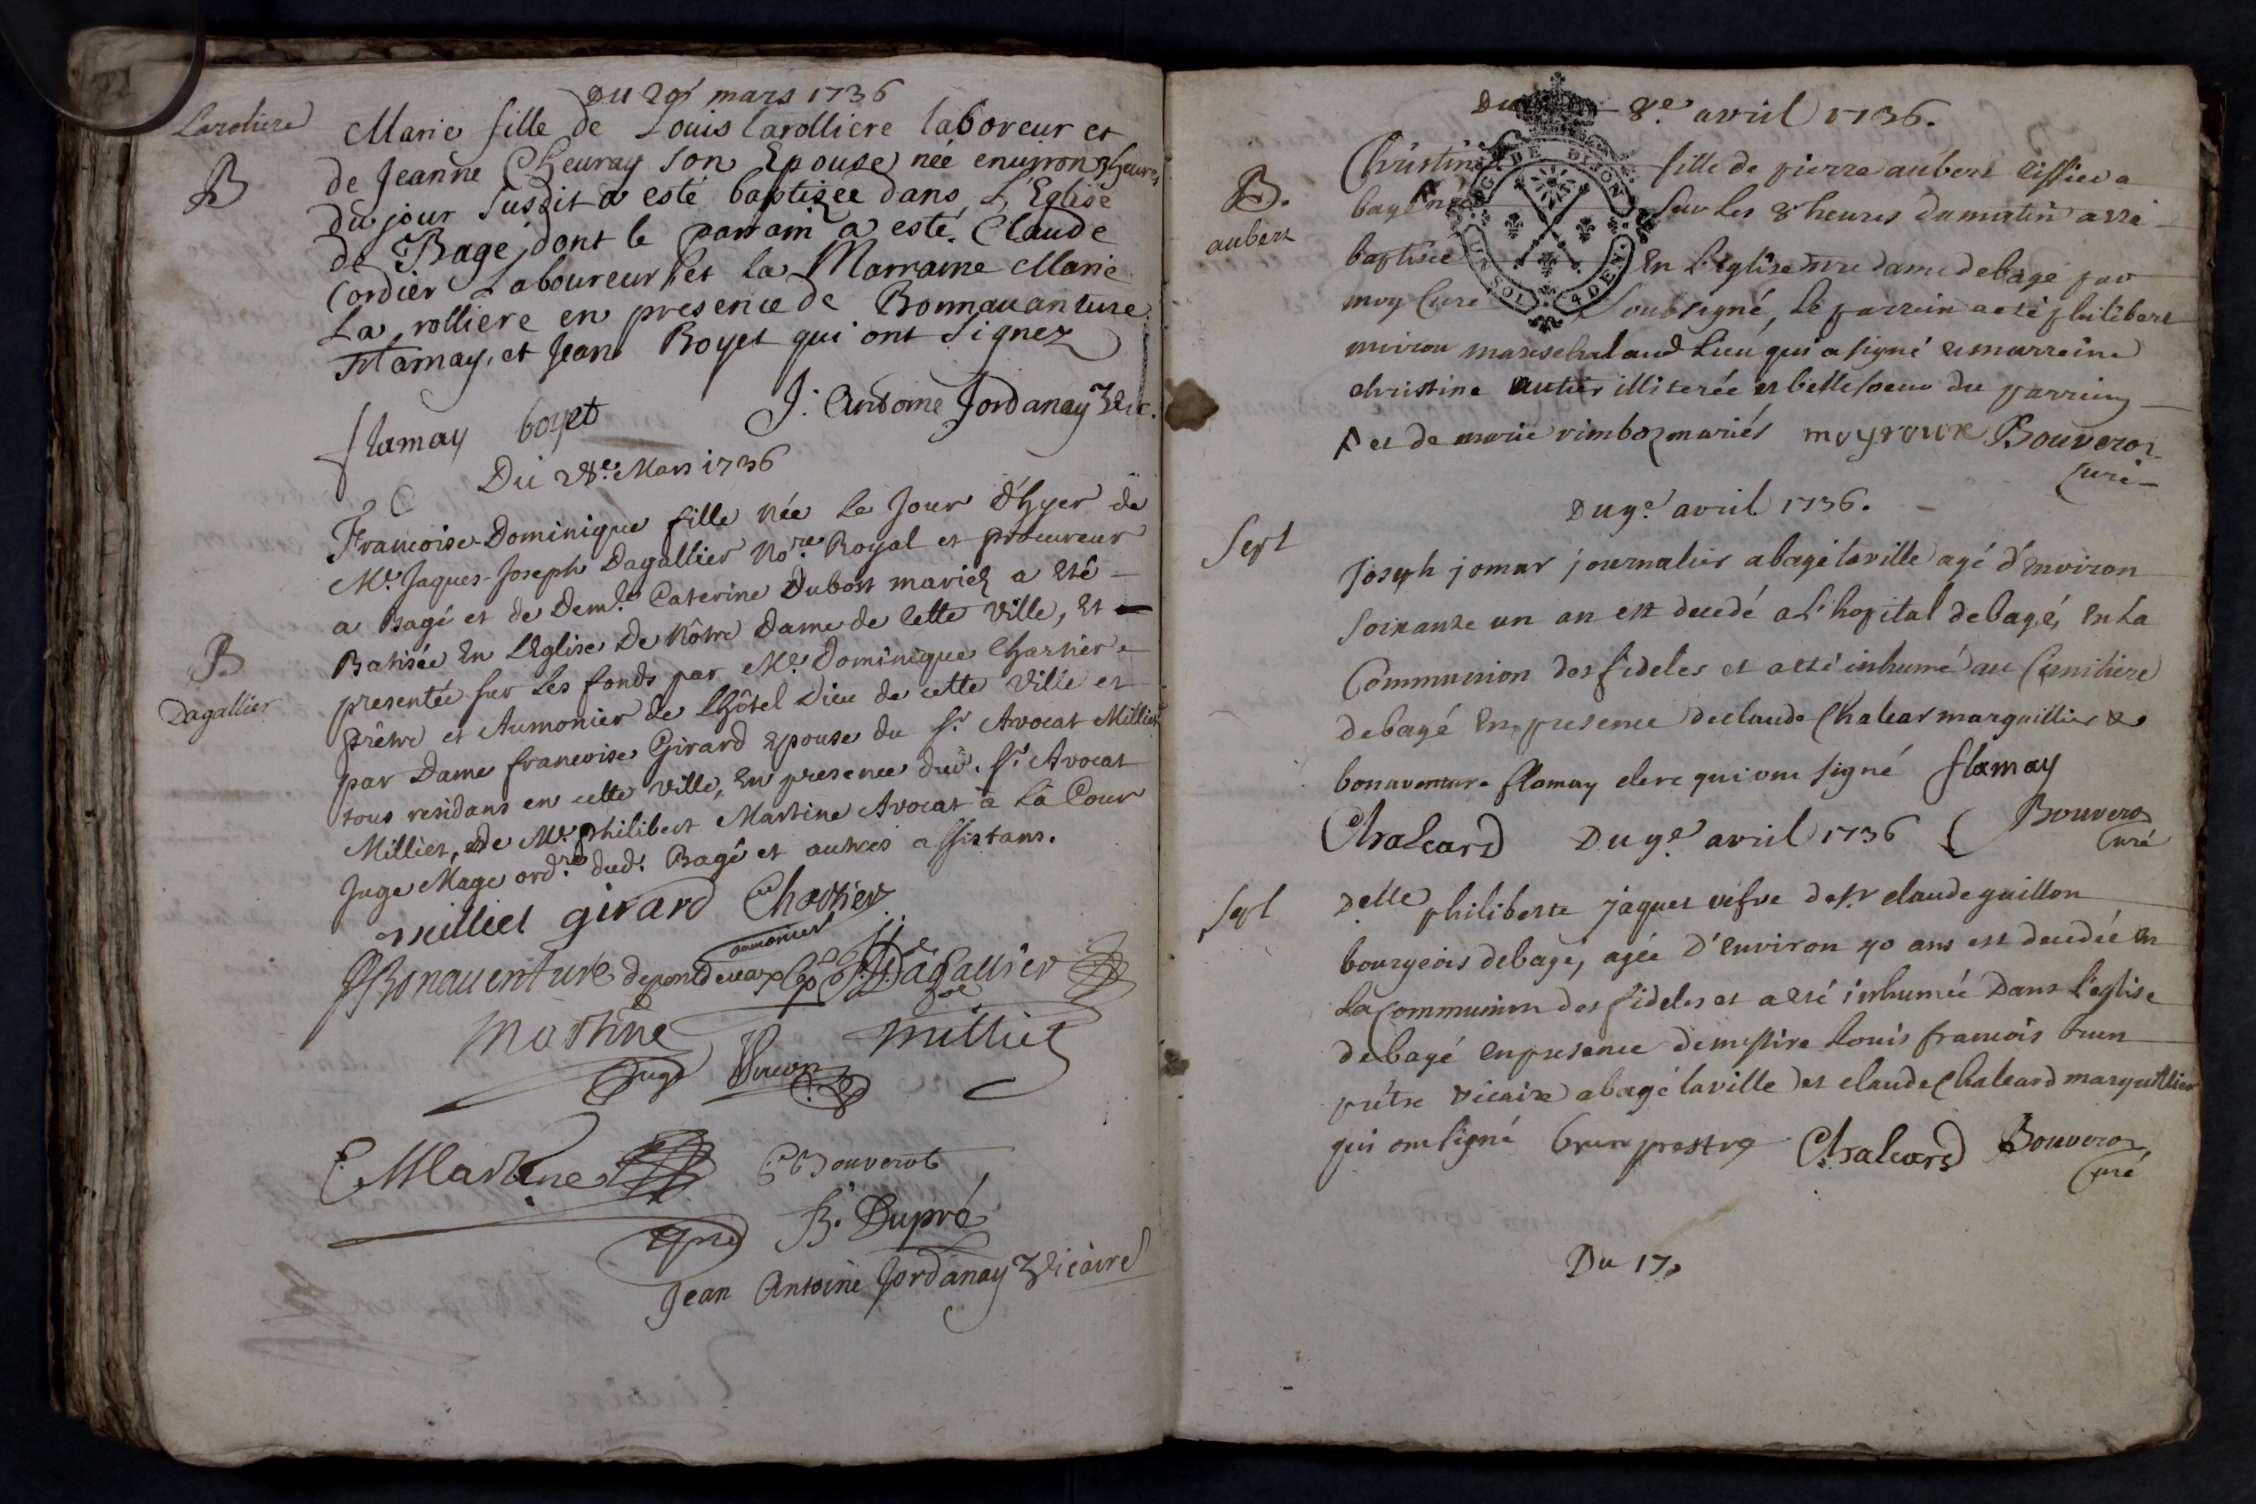 Du 20e mars 1736
Larotiere
B
Marie fille de Louis larolliere laboreur et
de Jeanne Cheuray son Epouse née enuiron heures
du jour susdit a esté baptizée dans L'Eglise
de Bagé, dont le parrain a esté Claude
Cordier Laboureur et la Marraine Marie
La rolliere en presence de Bonnauanture
Flamay, et Jean Boyet qui ont signez
flamay boyet J. Antoine Jordanay Vic.
Du 28e. Mars 1736
B
Dagallier
Francoise-Dominique fille née le Jour d'hyer de
Me. Jaques-Joseph Dagallier Nore. Royal et procureur
a Bagé et de Demle. Caterine Dubost mariéz a été
Batisée En L'Eglise de Nôtre Dame de cette Ville, Et
presentée sur les fonds par Me. Dominique Charrier
prêtre et Aumonier de L'hôtel Dieu de cette Ville et
par Dame francoise Girard Epouse du Sr. Avocat Milliet
tous residans en cette ville, En presence dud. Sr. Avocat
Milliet, de Me. philibert Martine Avocat à la Cour
Juge Mage ordre. dud. Bagé et autres assistans.
milliet girard Charrier
aumonier
Bonauenture depontdevaux Dagallier
Martine milliet
Juge
C Martine Bouverot
B. Dupré
Jean Antoine Jordanay Vicaire
Du 8e. avril 1736.
B.
aubert
GEN DE DIJON
UN SOL 4 DEN.
Christine fille de pierre aubert tissier a
bagé née sur les 8 heures du matin a été
baptisée En L'église nre dame de bagé par
moy Curé Soubsigné, le parrain a eté philibert
mareschal aud lieu qui a signé et marraine
christine illiterée et belle soeur du parrain
et de marie rimboz mariés Bouverot
Curé
Du 9e. avril 1736.
Sept
Joseph jomar journalier a bagé la ville agé d'Environ
soixante un an est decedé a L'hopital de bagé, En La
Communion des fideles et a eté inhumé au Cimitiere
de bagé En presence de claude Chalear marguillier &
bonaventure flamay clerc qui ont signé flamay
Chaleard Bouverot
curé
Du 9e. avril 1736
Sept
Delle philiberte jaquet vefve de Sr claude guillon
bourgeois de bagé, agée d'Environ 40 ans est decedée En
la Communion des fideles et a eté inhumée Dans L'eglise
de bagé En presence de messire Louis francois brun
prêtre vicaire a bagé la ville et claude Chaleard marguillier
qui ont signé brun prestre Chaleard Bouverot
curé
Du 17.